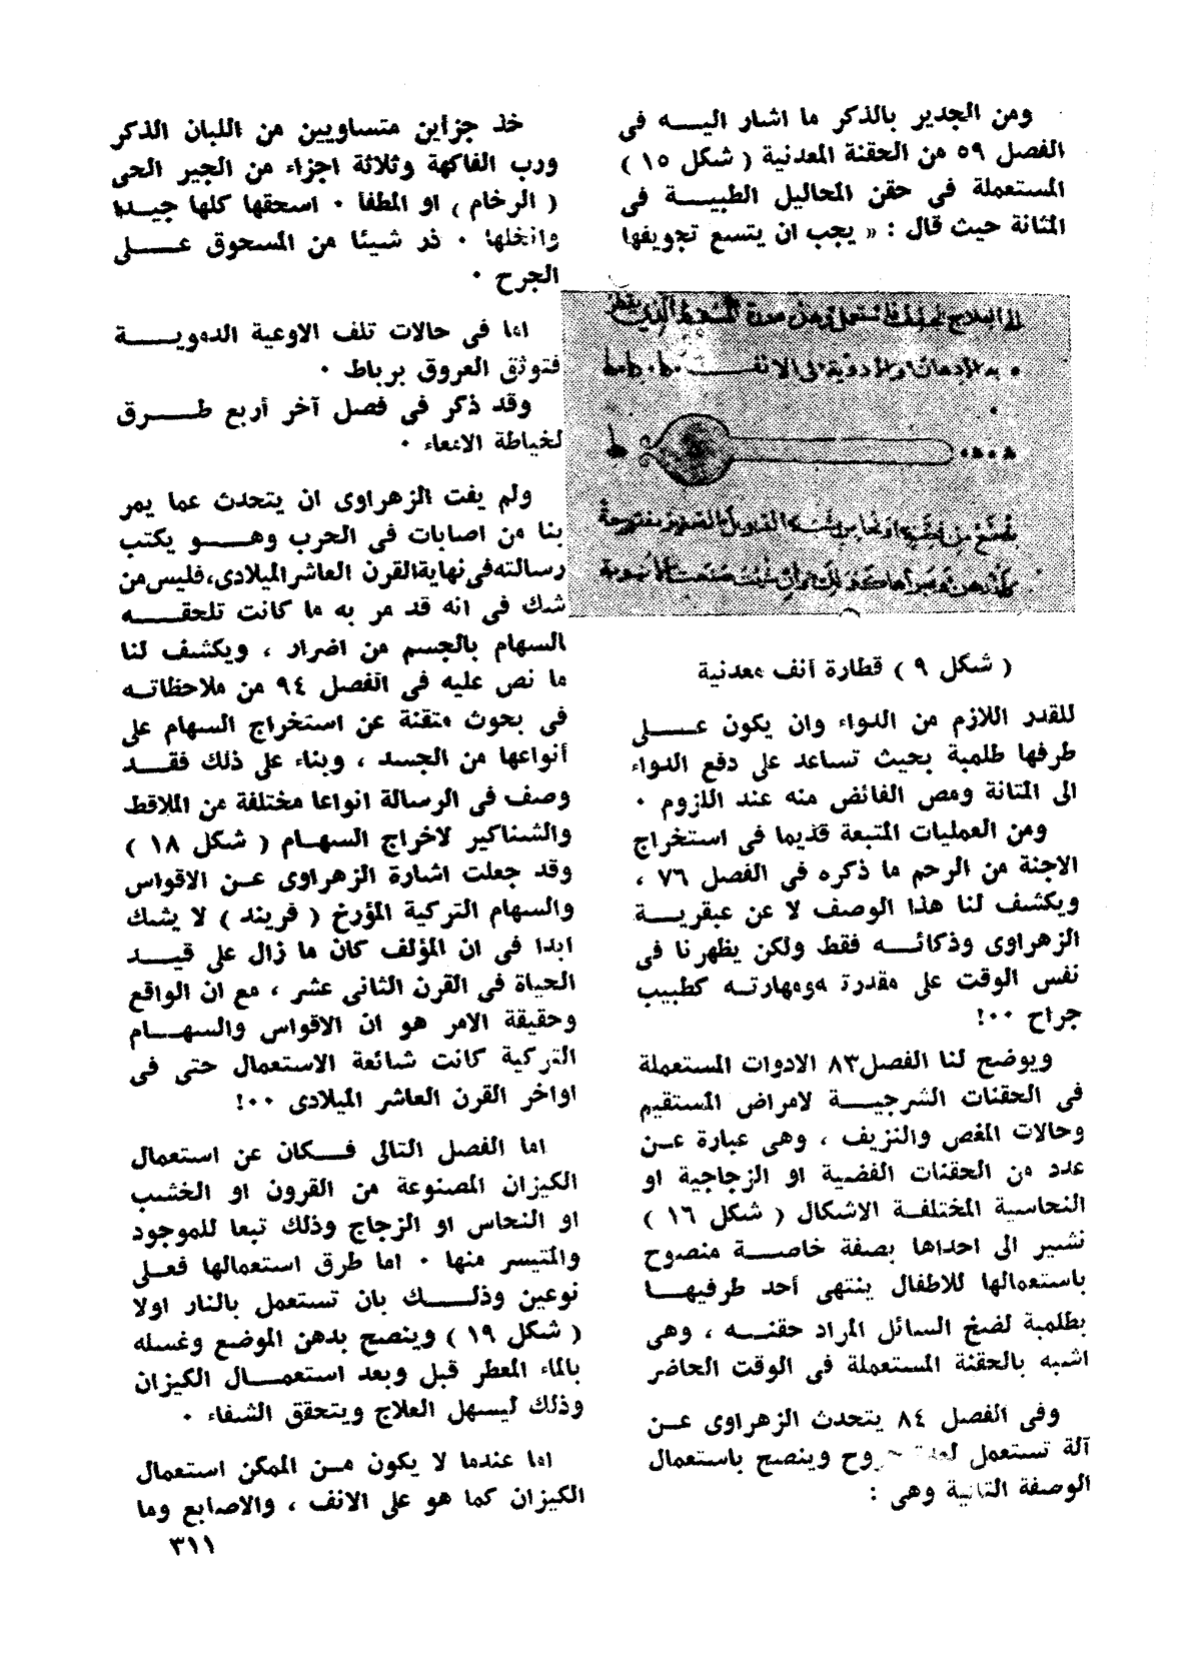 ومن الجدير بالذكر ما اشار اليه فى
الفصل ٥٩ من الحقنة المعدنية ( شكل ١٥ )
المستعملة فى حقن المحاليل الطبية فى
المثانة حيث قال : « يجب ان يتسع تجويفها
( شكل ٩ ) قطارة أنف معدنية
للقدر اللازم من الدواء وان يكون على
طرفها طلمبة بحيث تساعد على دفع الدواء
الى المثانة ومص الفائض منه عند اللزوم ٠
ومن العمليات المتبعة قديما فى استخراج
الاجنة من الرحم ما ذكره فى الفصل ٧٦ ،
ويكشف لنا هذا الوصف لا عن عبقرية
الزهراوى وذكائه فقط ولكن يظهرنا فى
نفس الوقت على مقدرة ومهارته كطبيب
جراح ٠٠!
ويوضح لنا الفصل٨٣ الادوات المستعملة
فى الحقنات الشرجية لامراض المستقيم
وحالات المغص والنزيف ، وهى عبارة عن
عدد من الحقنات الفضية او الزجاجية او
النحاسية المختلفة الاشكال ( شكل ١٦ )
نشير الى احداها بصفة خاصة منصوح
باستعمالها للاطفال ينتهى أحد طرفيها
بطلمبة لضخ السائل المراد حقنه ، وهى
اشبه بالحقنة المستعملة فى الوقت الحاضر
وفى الفصل ٨٤ يتحدث الزهراوى عن
آلة تستعمل وينصح باستعمال
الوصفة التالية وهى :
خذ جزأين متساويين من اللبان الذكر
ورب الفاكهة وثلاثة اجزاء من الجير الحى
( الرخام ) او المطفأ ٠ اسحقها كلها جيدا
وانخلها ٠ ذر شيئا من المسحوق على
الجرح ٠
اما فى حالات تلف الاوعية الدموية
فتوثق العروق برباط ٠
وقد ذكر فى فصل آخر أربع طرق
لخياطة الامعاء ٠
ولم يفت الزهراوى ان يتحدث عما يمر
بنا من اصابات فى الحرب وهو يكتب
رسالته فى نهاية القرن العاشر الميلادى، فليس من
شك فى انه قد مر به ما كانت تلحقه
السهام بالجسم من اضرار ، ويكشف لنا
ما نص عليه فى الفصل ٩٤ من ملاحظاته
فى بحوث متقنة عن استخراج السهام على
أنواعها من الجسد ، وبناء على ذلك فقد
وصف فى الرسالة انواعا مختلفة من الملاقط
والشناكير لاخراج السهام ( شكل ١٨ )
وقد جعلت اشارة الزهراوى عن الاقواس
والسهام التركية المؤرخ ( فريند ) لا يشك
ابدا فى ان المؤلف كان ما زال على قيد
الحياة فى القرن الثانى عشر ، مع ان الواقع
وحقيقة الامر هو ان الاقواس والسهام
التركية كانت شائعة الاستعمال حتى فى
اواخر القرن العاشر الميلادى ٠٠!
اما الفصل التالى فكان عن استعمال
الكيزان المصنوعة من القرون او الخشب
او النحاس او الزجاج وذلك تبعا للموجود
والمتيسر منها ٠ اما طرق استعمالها فعلى
نوعين وذلك بان تستعمل بالنار اولا
( شكل ١٩ ) وينصح بدهن الموضع وغسله
بالماء المعطر قبل وبعد استعمال الكيزان
وذلك ليسهل العلاج ويتحقق الشفاء ٠
اما عندما لا يكون من الممكن استعمال
الكيزان كما هو على الانف ، والاصابع وما
٣١١